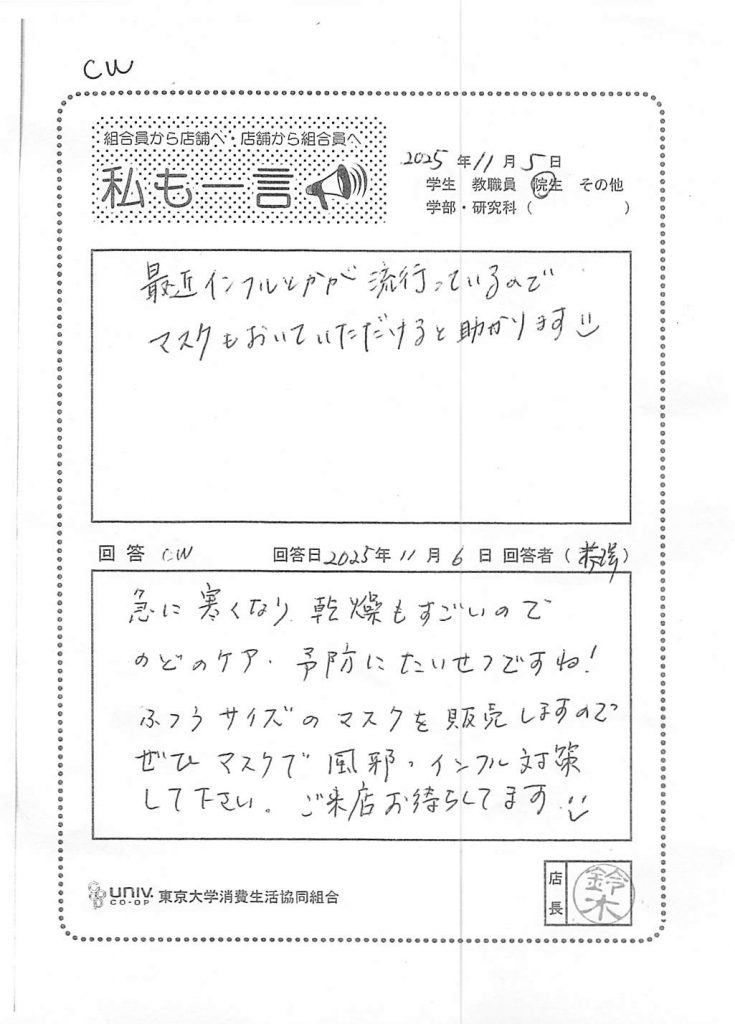 CW
組合員から店舗へ・店舗から組合員へ
私も一言
2025年11月5日
学生 教職員 院生 その他
学部・研究科( )
最近インフルとかが流行っているので
マスクもおいていただけると助かります
回答 CW 回答日2025年11月6日 回答者( )
急に寒くなり 乾燥もすごいので
のどのケア・予防にたいせつですね!
ふつうサイズのマスクを販売しますので
ぜひマスクで風邪・インフル対策
して下さい。ご来店お待ちしてます
UNIV. CO-OP 東京大学消費生活協同組合
店長 鈴木